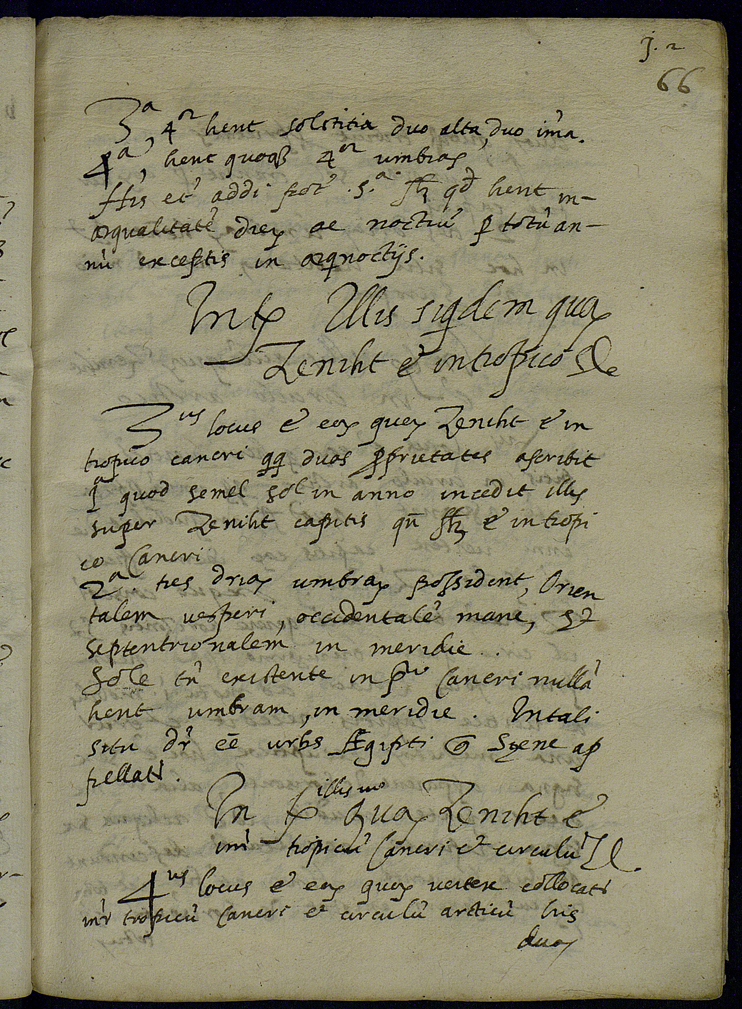 J. 2
66
3ᵃ, 4ᵒʳ hent solstitia duo alta, duo ima.
4ᵃ, hent quoqꝫ 4ᵒʳ umbras
His et addi 5ᵃ qđ hent in-
æqualitatē dieꝝ ac noctiū ꝑ totū an-
nū exceptis in æqnoctijs.
Illis siqdem quoꝝ
Zeniht ē in tropico
3ᵘˢ locus ē eoꝝ quoꝝ Zeniht ē in
tropico cancri duas ꝓprietates ascribit
quod semel sol in anno incedit illis
super Zeniht capitis qn̄ ē in tropi
co Cancri
2ᵃ. tres umbras possident, Orien
talem vesperi, occidentalē mane, et
septentrionalem in meridie.
Sole tn̄ existente in pᵒ Cancri nullā
hent umbram, in meridie. In tali
situ dr̄ eē urbs Ægipti Syene ap
pellata.
In illis quoꝝ Zeniht ē
int̄ tropicū Cancri et circulū
4ᵘˢ locus ē eoꝝ quoꝝ vertex collocat̄
int̄ tropicū Cancri et circulū arcticū his
duas